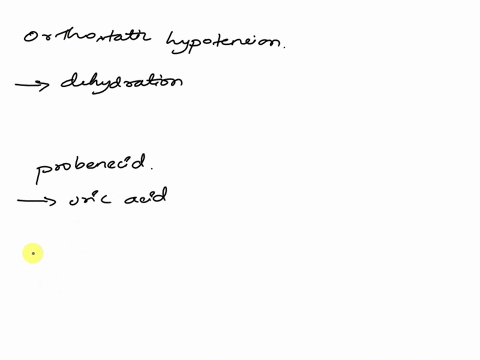 orthostatic hypotension.
→ dehydration
probenecid.
→ uric acid